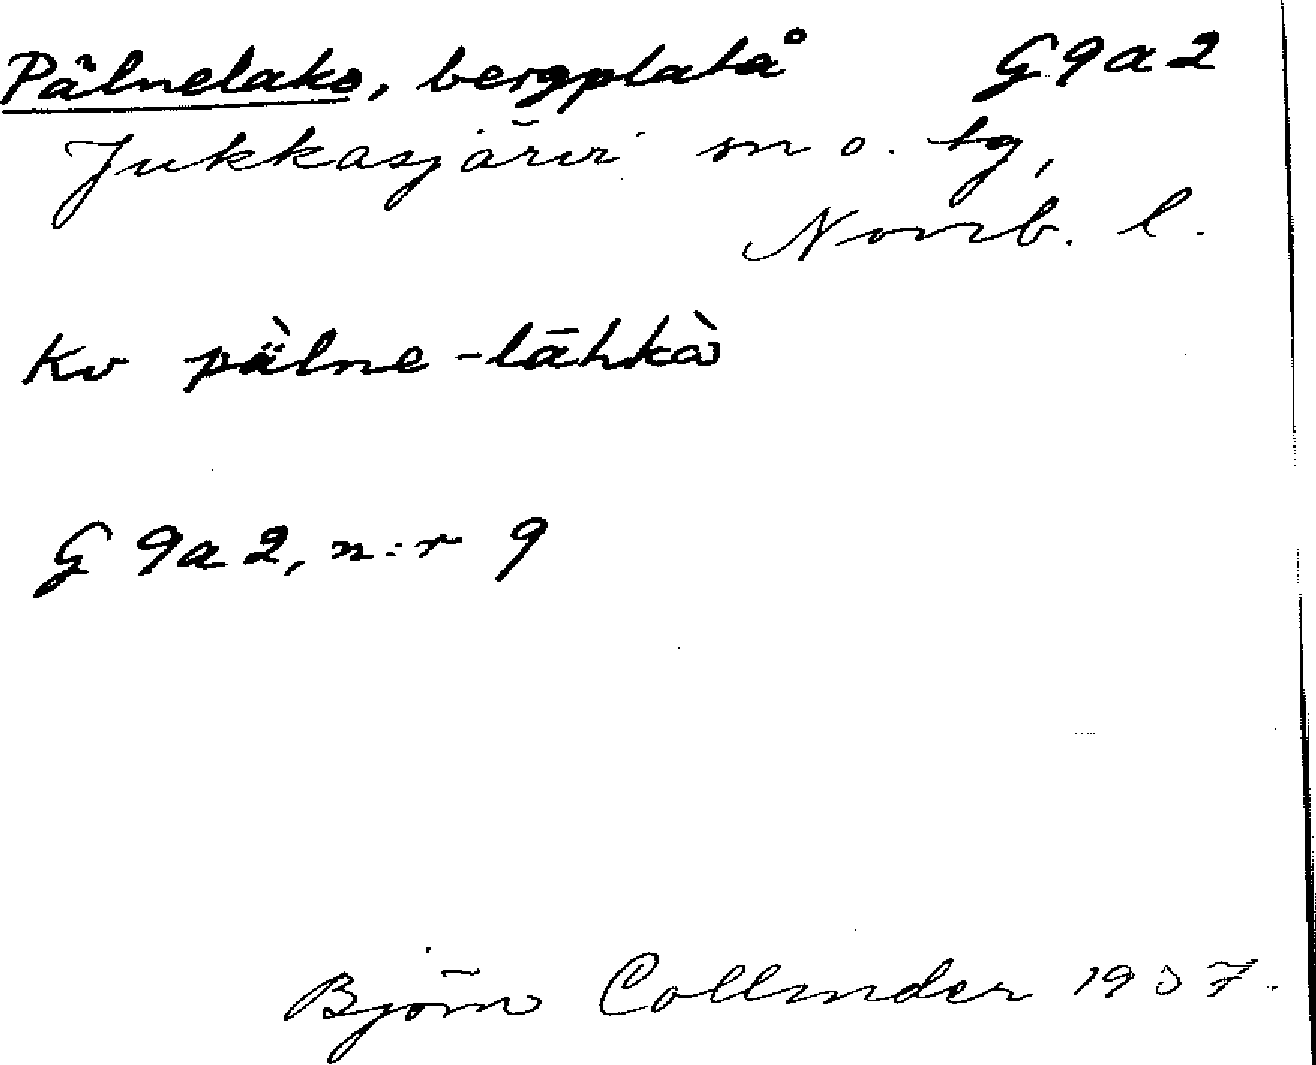 Pålnelako, bergplatå G 9 a 2
Jukkasjärvi sn o. tg,
Norrb. l.
Kv pä̀lne-lāhkà
G 9 a 2, n:r 9
Björn Collinder 1937.